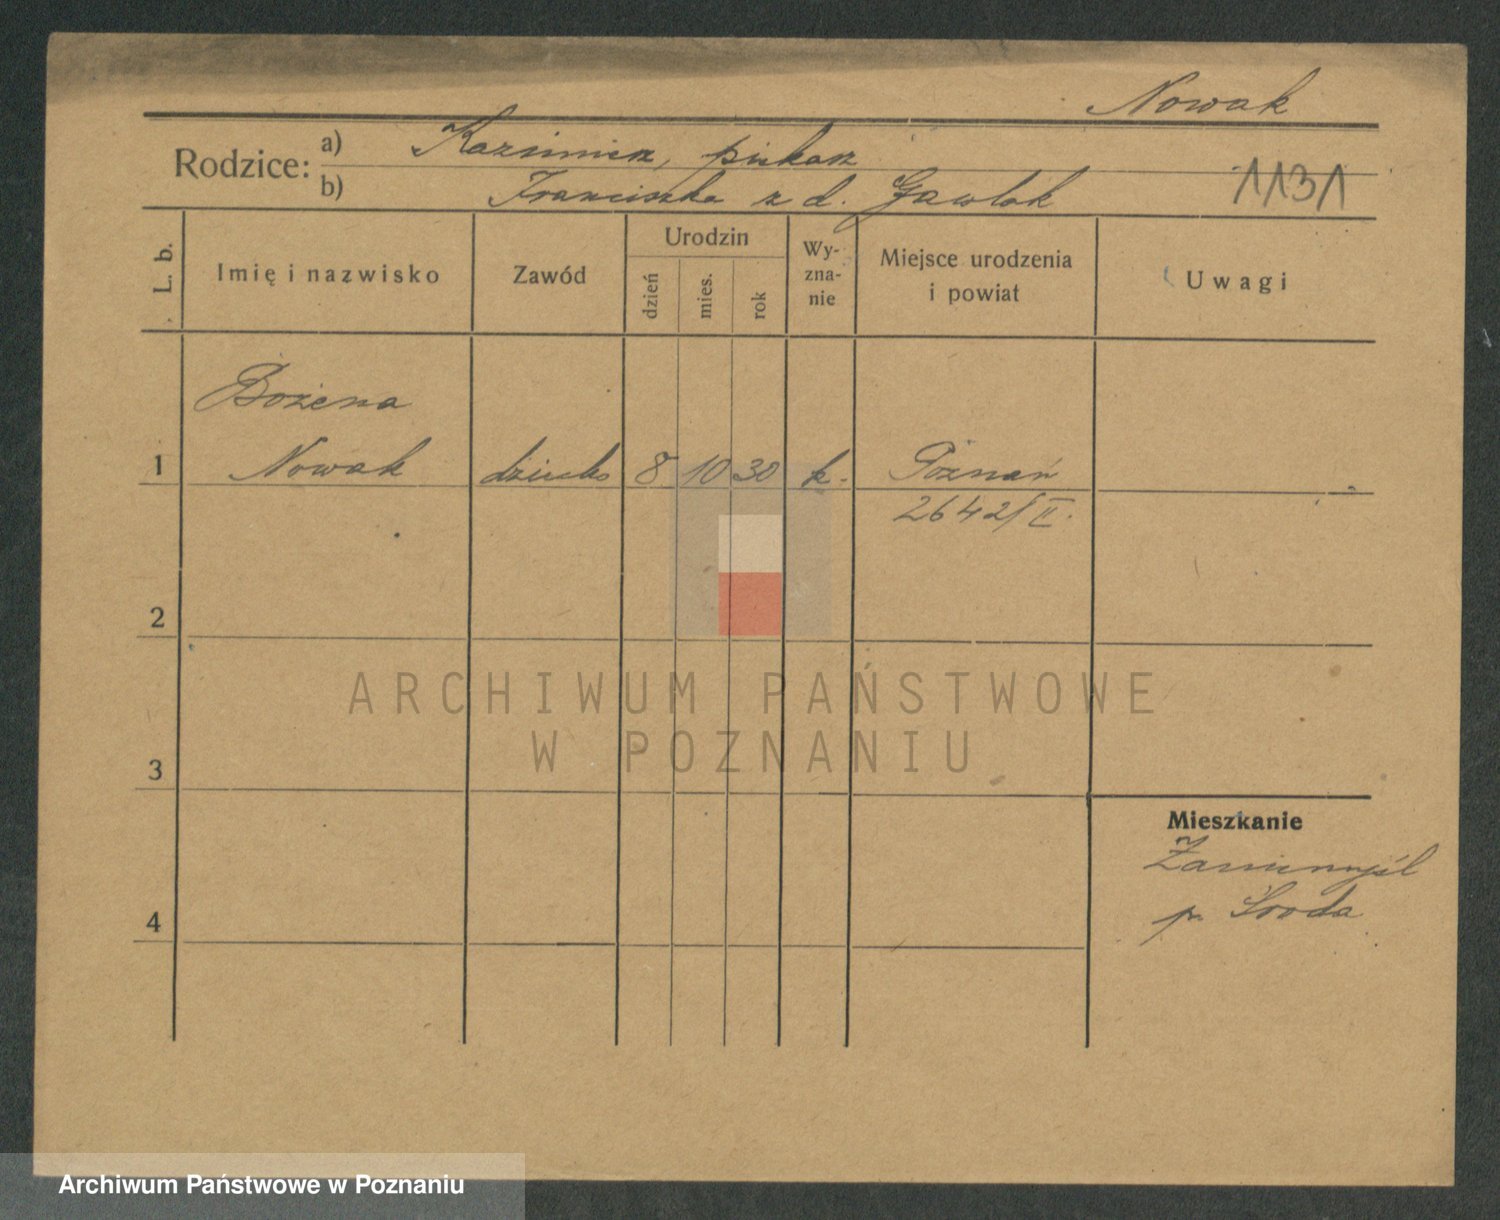 Nowak
Rodzice: a) Kazimierz, piekarz
b) Franciszka z d. Gawlak
1131
L. b.
Imię i nazwisko
Zawód
Urodzin
dzień
mies.
rok
Wy-
zna-
nie
Miejsce urodzenia
i powiat
Uwagi
Bożena
1 Nowak dziecko 8 10 30 k. Poznań
2642/II.
2
ARCHIWUM PAŃSTWOWE
W POZNANIU
3
Mieszkanie
Zaniemyśl
p. Środa
4
Archiwum Państwowe w Poznaniu